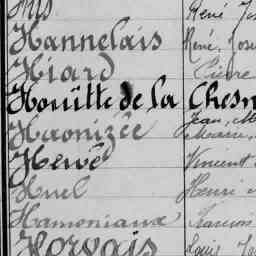 René Jos
Hannelais René, Jose
Hiard Pierre
Houïtte de la Chesn
Haonizée Jean, M
Hewé Vincent
Huel Henri
Hamoniaux Francois
Horvais Louis